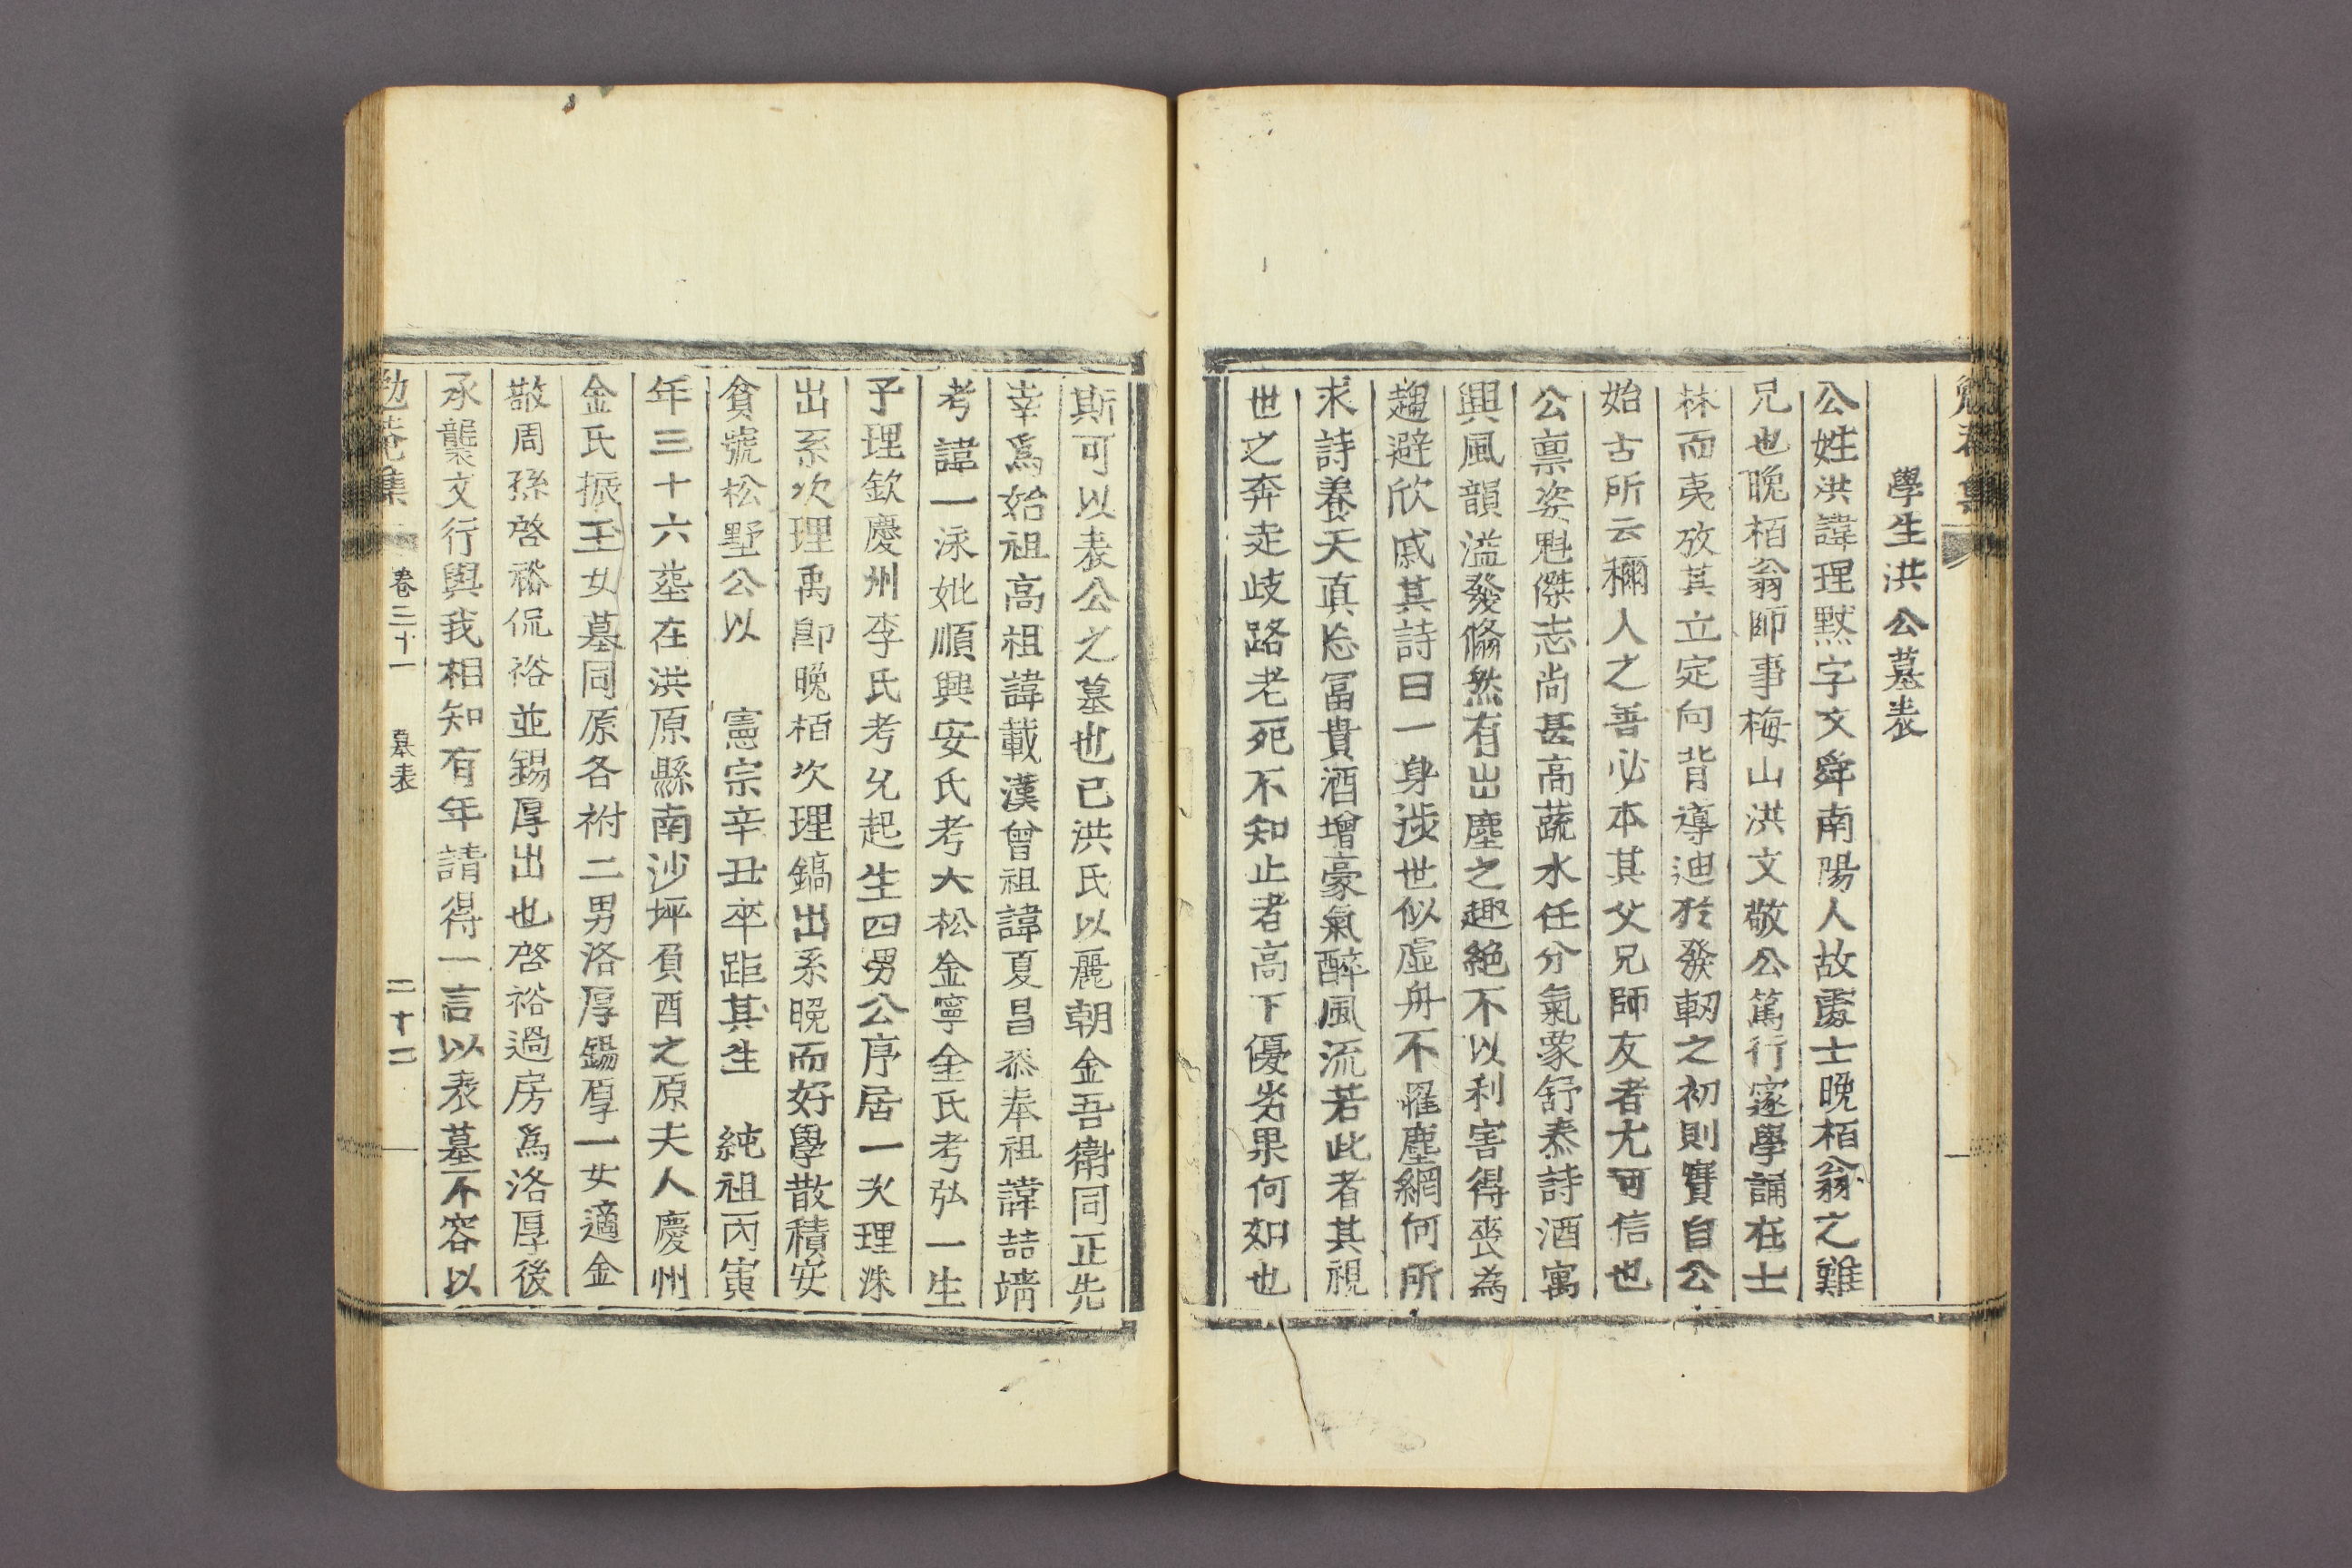 學生洪公墓表
公姓洪諱理默字文舜南陽人故處士晩栢翁之難
兄也晩栢翁師事梅山洪文敬公篤行邃學誦在士
林而夷攷其立定向背導迪於發軔之初則實自公
始古所云稱人之善必本其父兄師友者尤可信也
公禀姿魁傑志尙甚高蔬水任分氣象舒泰詩酒寓
興風韻溢發翛然有出塵之趣絶不以利害得喪爲
趨避欣戚其詩曰一身涉世似虛舟不罹塵網何所
求詩養天眞忘冨貴酒增豪氣醉風流若此者其視
世之奔走歧路老死不知止者高下優劣果何如也
斯可以表公之墓也已洪氏以麗朝金吾衛同正先
幸爲始祖高祖諱載漢曾祖諱夏昌忝奉祖諱喆靖
考諱一泳妣順興安氏考大松金寧金氏考弘一生
予理欽慶州李氏考允起生四男公序居一次理洙
出系次理禹卽晩栢次理鎬出系晩而好學散積安
貧號松墅公以 憲宗辛丑卒距其生 純祖丙寅
年三十六葬在洪原縣南沙坪負酉之原夫人慶州
金氏振玉女墓同原各祔二男洛厚錫厚一女適金
敬周孫啓裕侃裕並錫厚出也啓裕過房爲洛厚後
承襲文行與我相知有年請得一言以表墓不容以
勉菴集 卷三十一 墓表 二十二